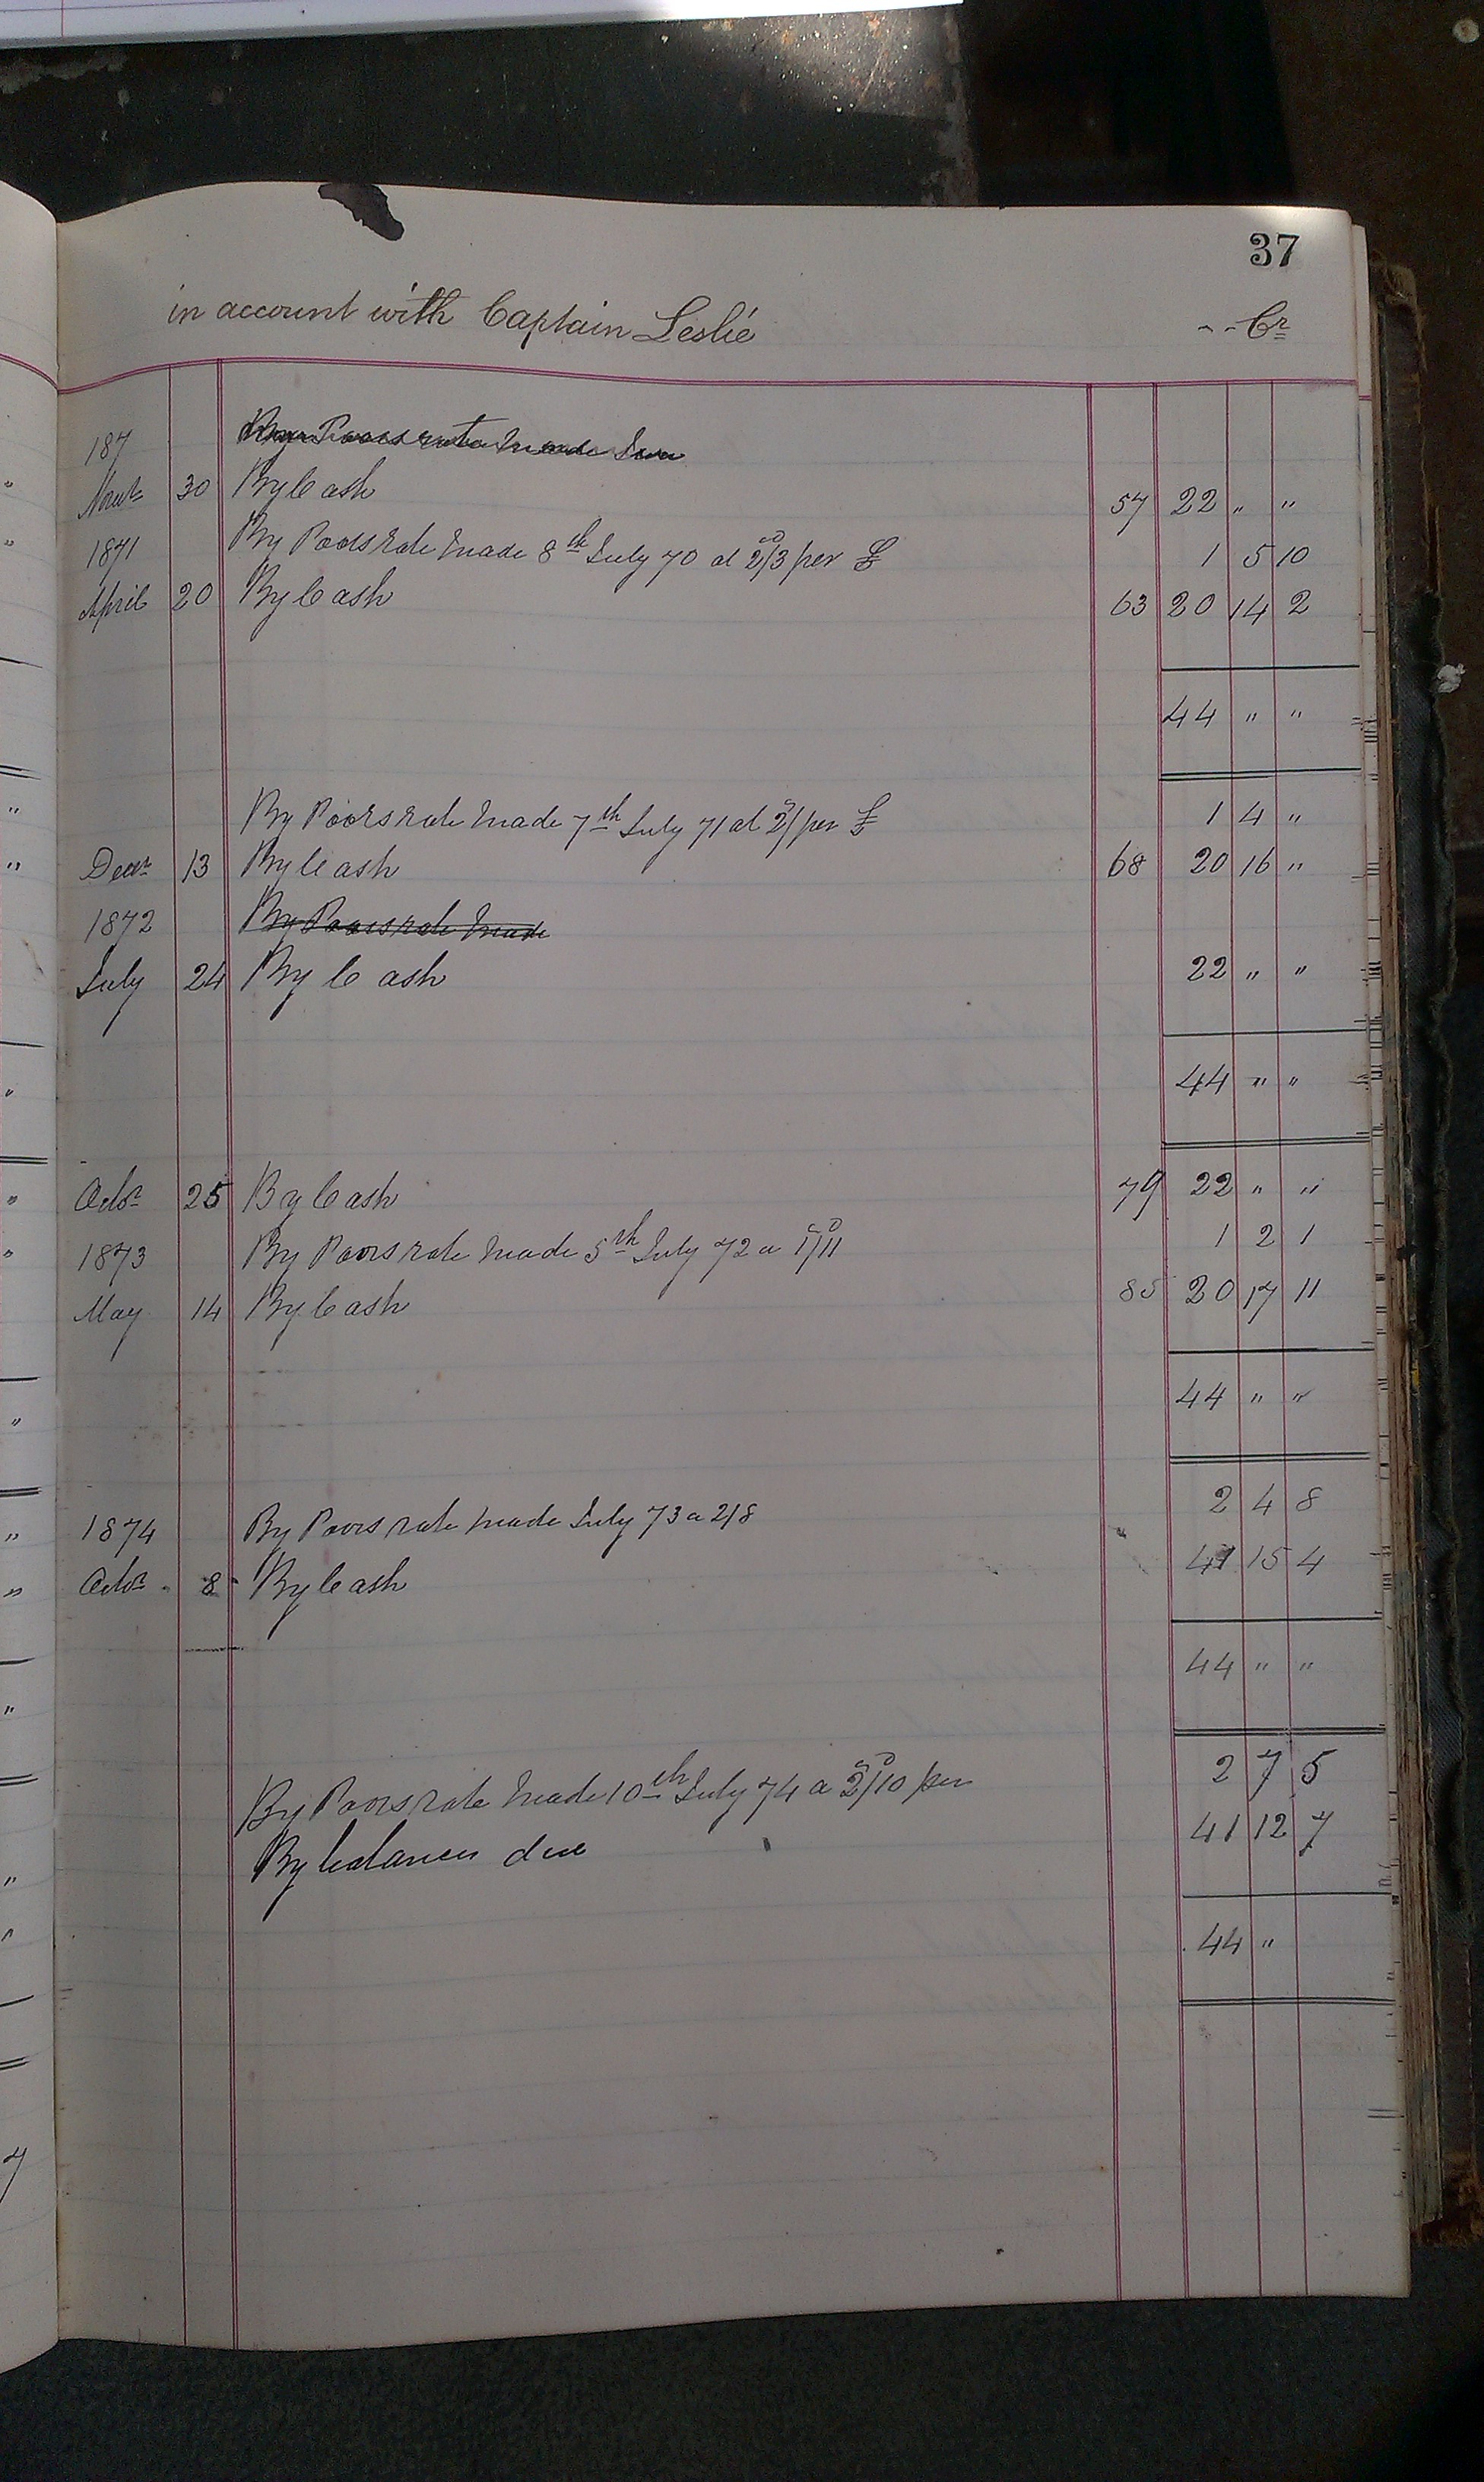 37
in account with Captain Leslie - - Cr
187 By Poors rate made
Novr 30 By Cash 57 22 " "
1871 By Poors rate made 8th July 70 at 2/3 per £ 1 5 10
April 20 By Cash 63 20 14 2
44 " "
By Poors rate made 7th July 71 at 2/ per £ 1 4 "
Decr 13 By Cash 68 20 16 "
1872 By Poors rate made
July 24 By Cash 22 " "
44 " "
Octr 25 By Cash 79 22 " "
1873 By Poors rate made 5th July 72 a 1/11 1 2 1
May 14 By Cash 85 20 17 11
44 " "
1874 By Poors rate made July 73 a 2/8 2 4 8
Octr 8 By Cash 41 15 4
44 " "
By Poors rate made 10th July 74 a 2/10 per 2 7 5
By balances due 41 12 7
44 "
7